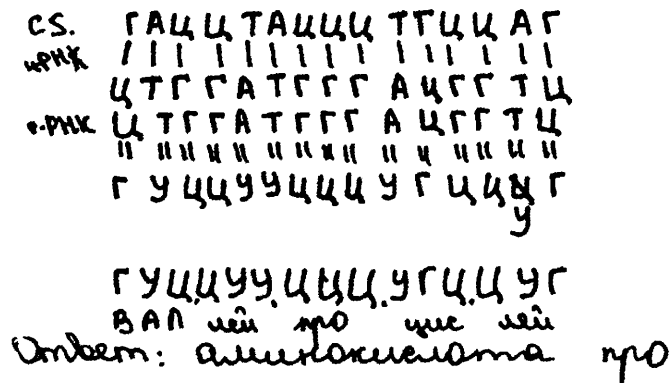 С5. ГАЦЦТАЦЦЦТТГЦЦАГ
иРНК
ЦТГГАТГГГАЦГГТЦ
т-РНК ЦТГГАТГГГАЦГГТЦ
ГУЦЦУУЦЦЦУГЦЦУГ
У
ГУЦ,ЦУУ,ЦЦЦ,УГЦ,ЦУГ
ВАЛ лей про цис лей
Ответ: аминокислота про